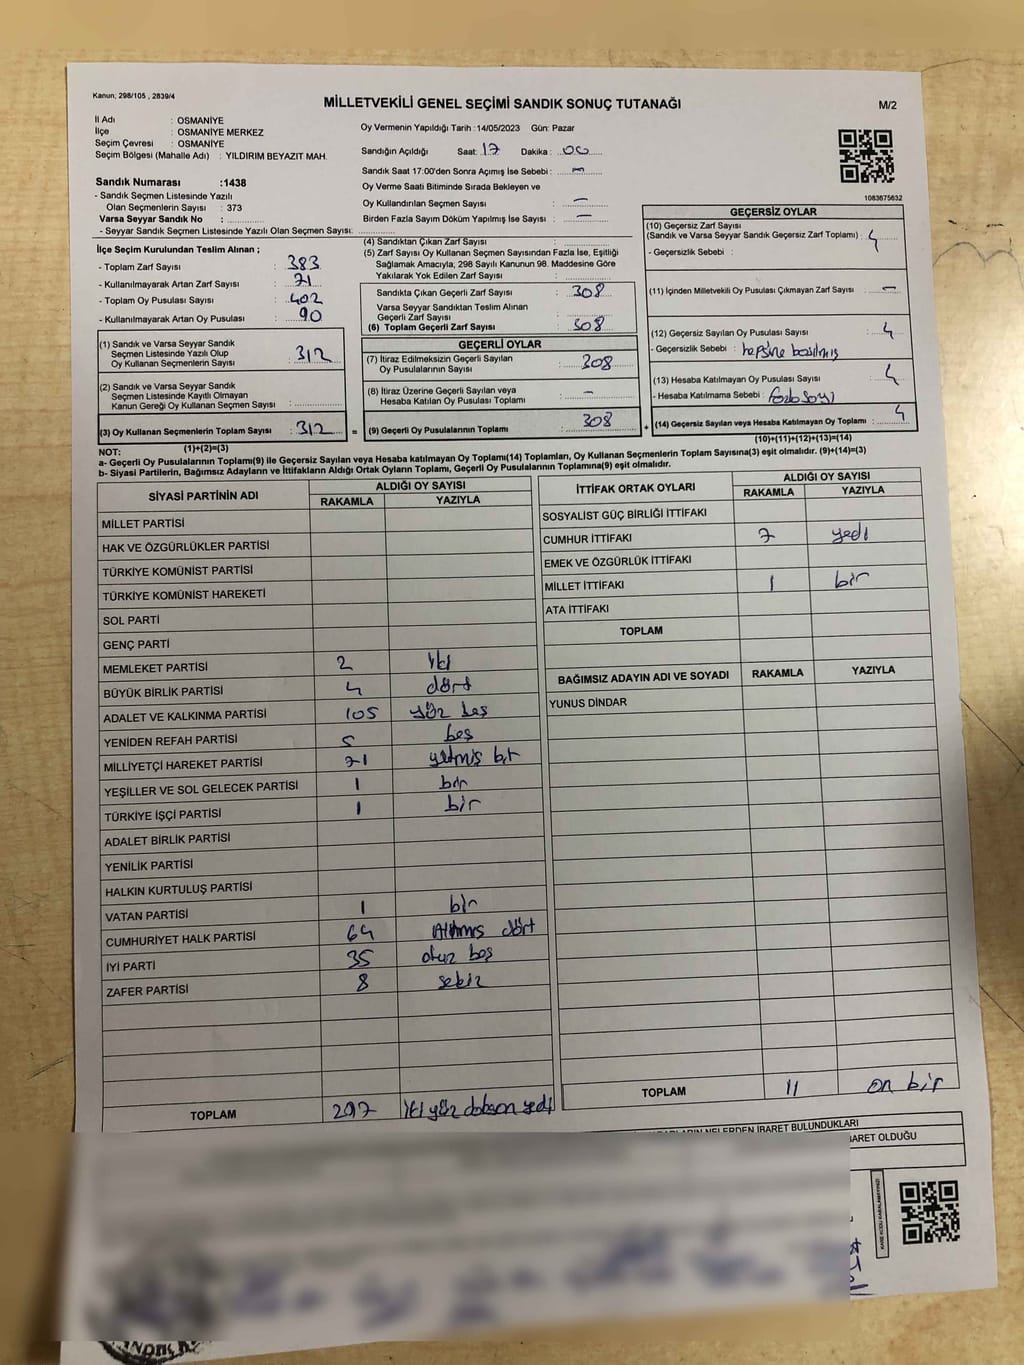 Kanun; 298/105 , 2839/4
MİLLETVEKİLİ GENEL SEÇİMİ SANDIK SONUÇ TUTANAĞI
M/2
İl Adı : OSMANİYE
İlçe : OSMANİYE MERKEZ
Seçim Çevresi : OSMANİYE
Seçim Bölgesi (Mahalle Adı) : YILDIRIM BEYAZIT MAH.
Oy Vermenin Yapıldığı Tarih : 14/05/2023 Gün: Pazar
Sandığın Açıldığı Saat: 17 Dakika : 00
Sandık Saat 17:00'den Sonra Açımış İse Sebebi : —
Oy Verme Saati Bitiminde Sırada Bekleyen ve
Oy Kullandırılan Seçmen Sayısı : —
Birden Fazla Sayım Döküm Yapılmış İse Sayısı : —
Sandık Numarası :1438
- Sandık Seçmen Listesinde Yazılı
Olan Seçmenlerin Sayısı : 373
Varsa Seyyar Sandık No :
- Seyyar Sandık Seçmen Listesinde Yazılı Olan Seçmen Sayısı:
1083675632
İlçe Seçim Kurulundan Teslim Alınan ;
- Toplam Zarf Sayısı : 383
- Kullanılmayarak Artan Zarf Sayısı : 71
- Toplam Oy Pusulası Sayısı : 402
- Kullanılmayarak Artan Oy Pusulası : 90
(1) Sandık ve Varsa Seyyar Sandık
Seçmen Listesinde Yazılı Olup
Oy Kullanan Seçmenlerin Sayısı : 312
(2) Sandık ve Varsa Seyyar Sandık
Seçmen Listesinde Kayıtlı Olmayan
Kanun Gereği Oy Kullanan Seçmen Sayısı :
(3) Oy Kullanan Seçmenlerin Toplam Sayısı : 312 =
(1)+(2)=(3)
(4) Sandıktan Çıkan Zarf Sayısı :
(5) Zarf Sayısı Oy Kullanan Seçmen Sayısından Fazla İse, Eşitliği
Sağlamak Amacıyla, 298 Sayılı Kanunun 98. Maddesine Göre
Yakılarak Yok Edilen Zarf Sayısı :
Sandıkta Çıkan Geçerli Zarf Sayısı : 308
Varsa Seyyar Sandıktan Teslim Alınan
Geçerli Zarf Sayısı :
(6) Toplam Geçerli Zarf Sayısı : 308
GEÇERLİ OYLAR
(7) İtiraz Edilmeksizin Geçerli Sayılan
Oy Pusulalarının Sayısı : 308
(8) İtiraz Üzerine Geçerli Sayılan veya
Hesaba Katılan Oy Pusulası Toplamı : —
(9) Geçerli Oy Pusulalarının Toplamı : 308 +
GEÇERSİZ OYLAR
(10) Geçersiz Zarf Sayısı
(Sandık ve Varsa Seyyar Sandık Geçersiz Zarf Toplamı) : 4
- Geçersizlik Sebebi :
(11) İçinden Milletvekili Oy Pusulası Çıkmayan Zarf Sayısı : —
(12) Geçersiz Sayılan Oy Pusulası Sayısı : 4
- Geçersizlik Sebebi : hepsine basılmış
(13) Hesaba Katılmayan Oy Pusulası Sayısı : 4
- Hesaba Katılmama Sebebi :
(14) Geçersiz Sayılan veya Hesaba Katılmayan Oy Toplamı : 4
(10)+(11)+(12)+(13)=(14)
NOT:
a- Geçerli Oy Pusulalarının Toplamı(9) ile Geçersiz Sayılan veya Hesaba katılmayan Oy Toplamı(14) Toplamları, Oy Kullanan Seçmenlerin Toplam Sayısına(3) eşit olmalıdır. (9)+(14)=(3)
b- Siyasi Partilerin, Bağımsız Adayların ve İttifakların Aldığı Ortak Oyların Toplamı, Geçerli Oy Pusulalarının Toplamına(9) eşit olmalıdır.
SİYASİ PARTİNİN ADI ALDIĞI OY SAYISI
RAKAMLA YAZIYLA
MİLLET PARTİSİ
HAK VE ÖZGÜRLÜKLER PARTİSİ
TÜRKİYE KOMÜNİST PARTİSİ
TÜRKİYE KOMÜNİST HAREKETİ
SOL PARTİ
GENÇ PARTİ
MEMLEKET PARTİSİ 2 iki
BÜYÜK BİRLİK PARTİSİ 4 dört
ADALET VE KALKINMA PARTİSİ 105 yüz beş
YENİDEN REFAH PARTİSİ 5 beş
MİLLİYETÇİ HAREKET PARTİSİ 71 yetmiş bir
YEŞİLLER VE SOL GELECEK PARTİSİ 1 bir
TÜRKİYE İŞÇİ PARTİSİ 1 bir
ADALET BİRLİK PARTİSİ
YENİLİK PARTİSİ
HALKIN KURTULUŞ PARTİSİ
VATAN PARTİSİ 1 bir
CUMHURİYET HALK PARTİSİ 64 Altmış dört
İYİ PARTİ 35 otuz beş
ZAFER PARTİSİ 8 sekiz
TOPLAM 297 iki yüz doksan yedi
İTTİFAK ORTAK OYLARI ALDIĞI OY SAYISI
RAKAMLA YAZIYLA
SOSYALİST GÜÇ BİRLİĞİ İTTİFAKI
CUMHUR İTTİFAKI 7 yedi
EMEK VE ÖZGÜRLÜK İTTİFAKI
MİLLET İTTİFAKI 1 bir
ATA İTTİFAKI
TOPLAM
BAĞIMSIZ ADAYIN ADI VE SOYADI RAKAMLA YAZIYLA
YUNUS DİNDAR
TOPLAM 11 on bir
NELERDEN İBARET BULUNDUKLARI
BARET OLDUĞU